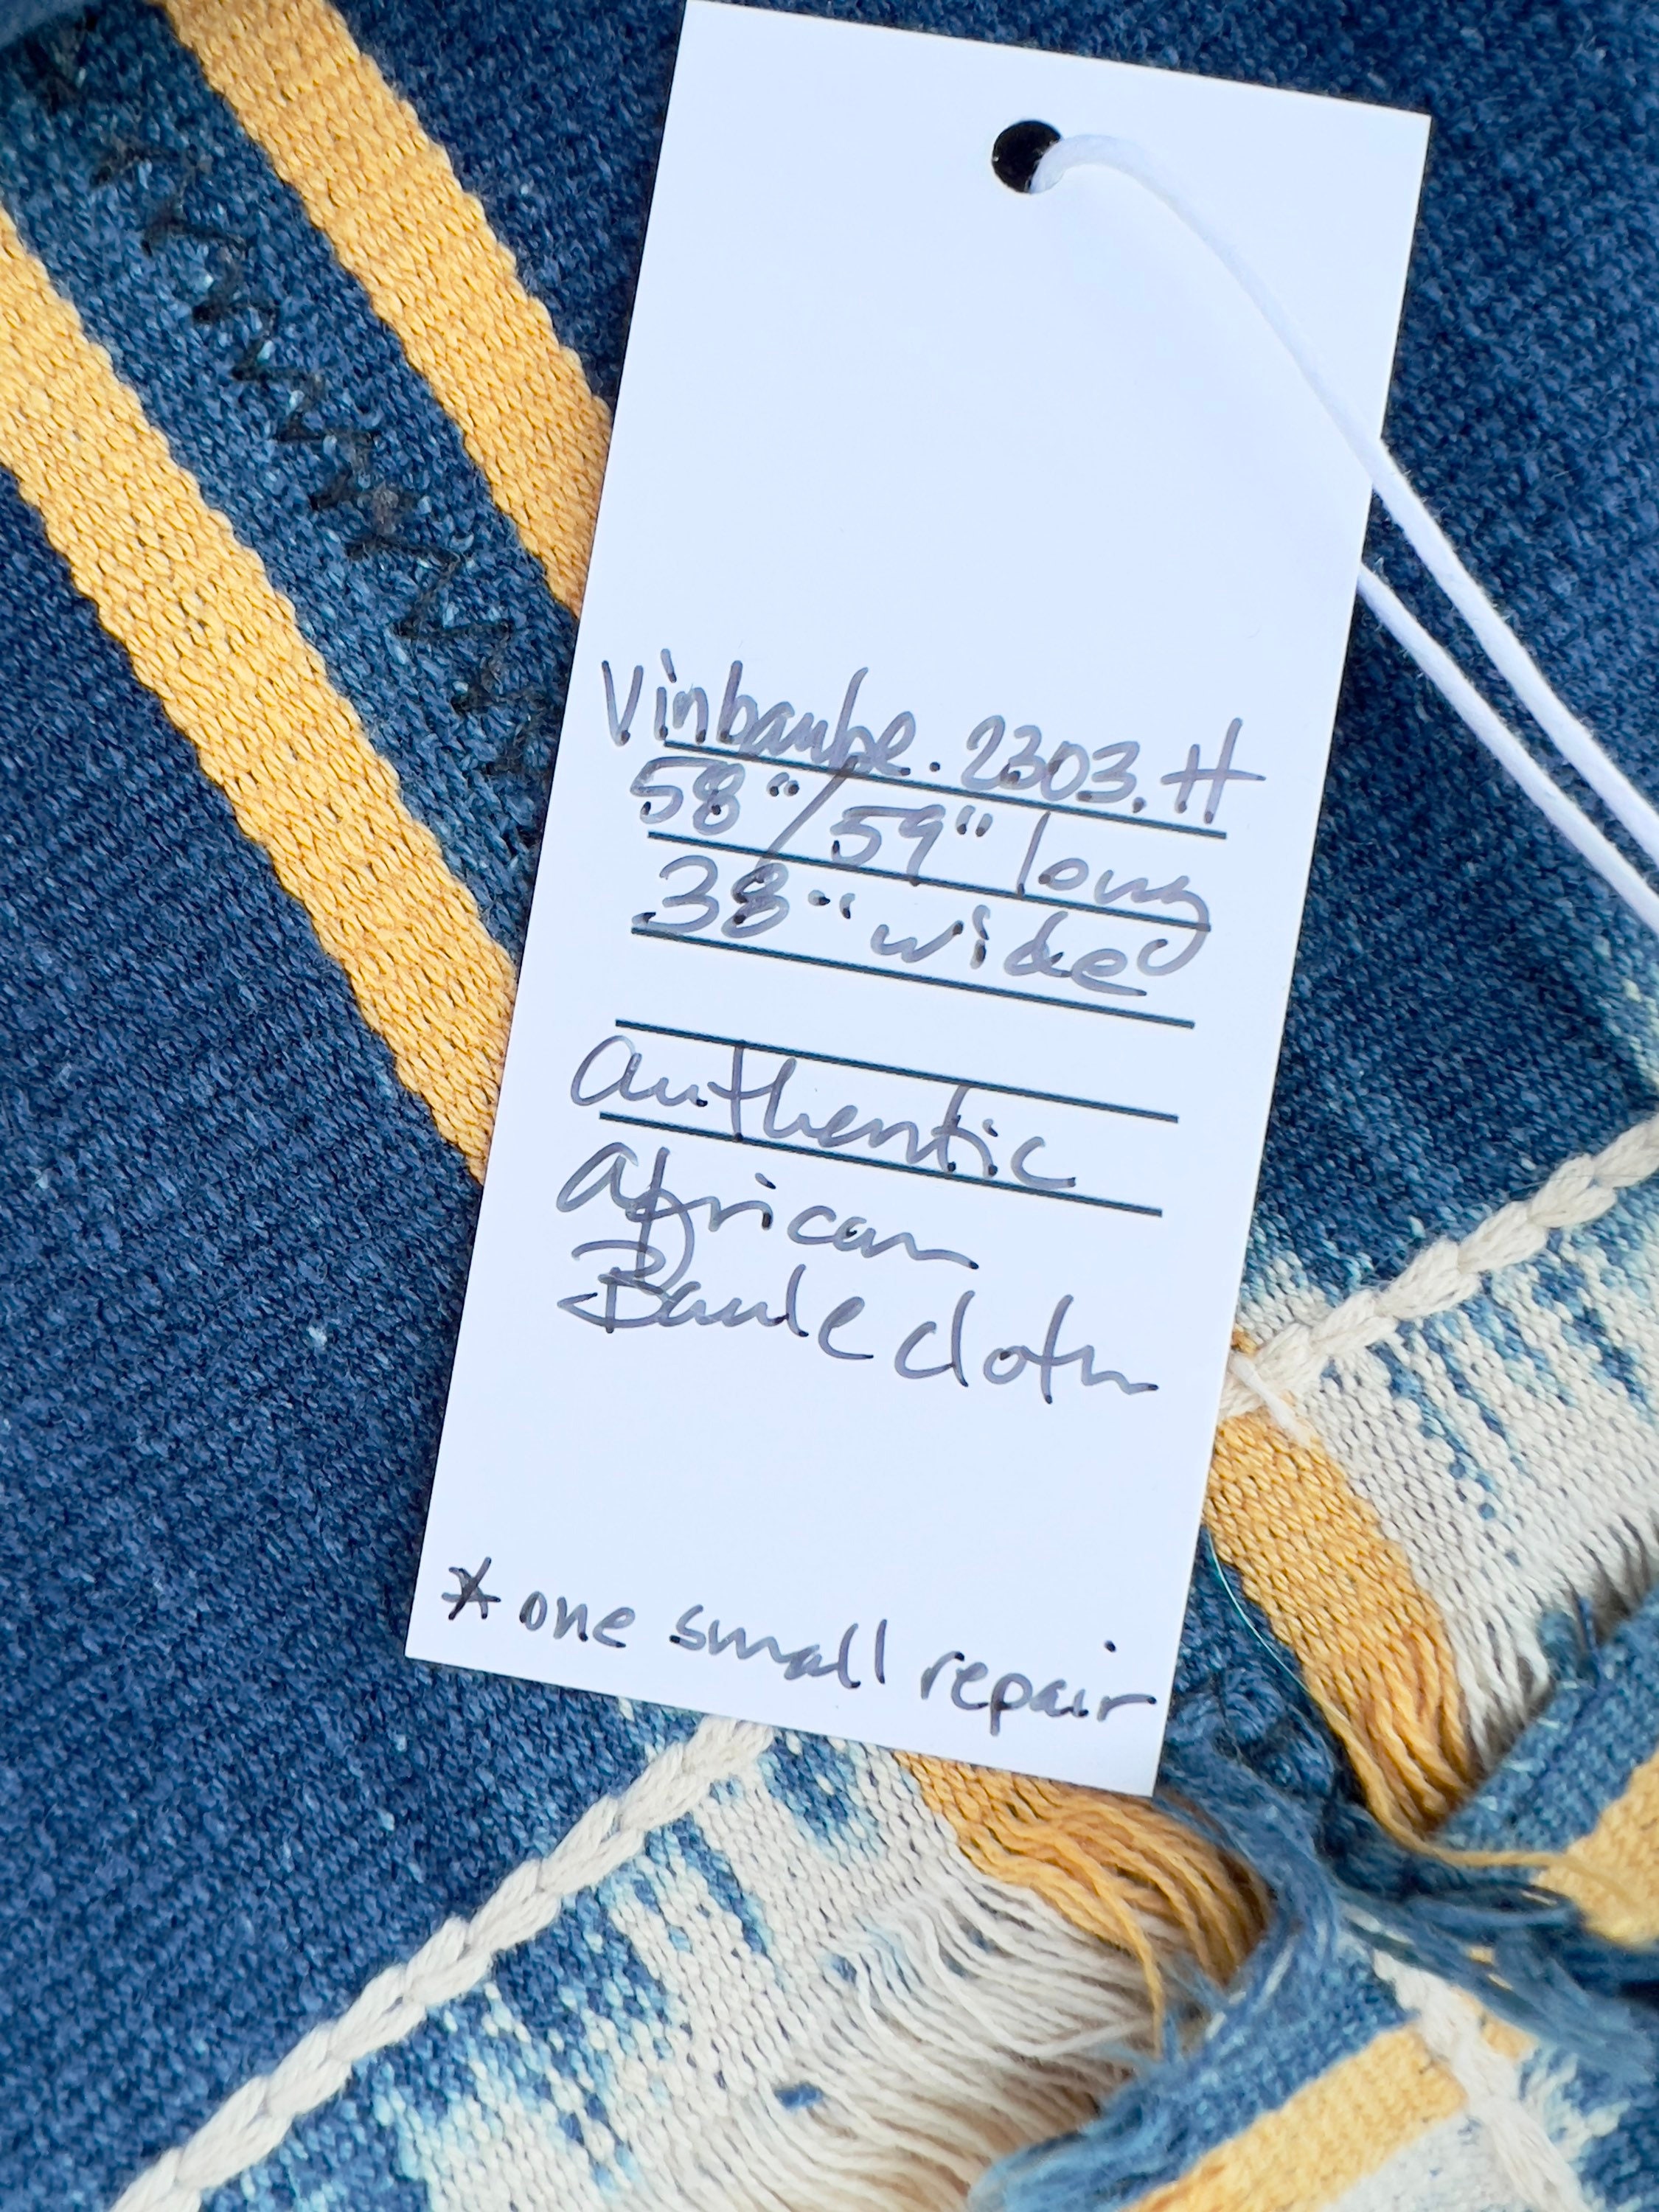 Vinbaule.2303.H
58"/59" long
38" wide
authentic
African
Baule cloth
* one small repair